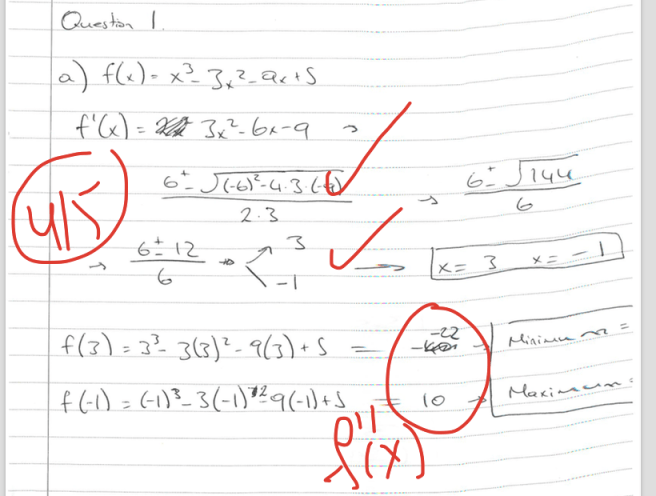 Question 1.
a) f(x) = x³ - 3x² - 9x + 5
f'(x) = 3x² - 6x - 9 →
4/5
6 ± √(-6)² - 4.3.(-9) / 2.3 → 6 ± √144 / 6
→ 6 ± 12 / 6 → 3 -1 → x = 3 x = -1
f(3) = 3³ - 3(3)² - 9(3) + 5 = -22 → Minimum =
f(-1) = (-1)³ - 3(-1)² - 9(-1) + 5 = 10 → Maximum =
f''(x)